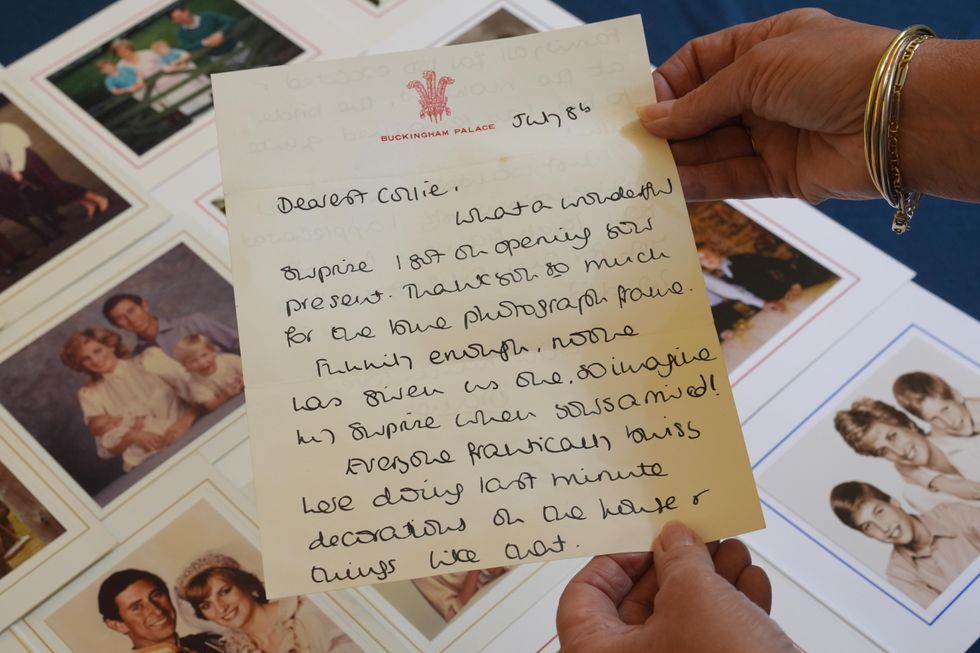 BUCKINGHAM PALACE
July 86
Dearest Collie,
What a wonderful
surprise I got on opening your
present. Thank you so much
for the photograph frame.
Funnily enough, no one
has given us one, so imagine
my surprise when yours arrived!
Everyone frantically
here doing last minute
decorations on the house &
things like that.